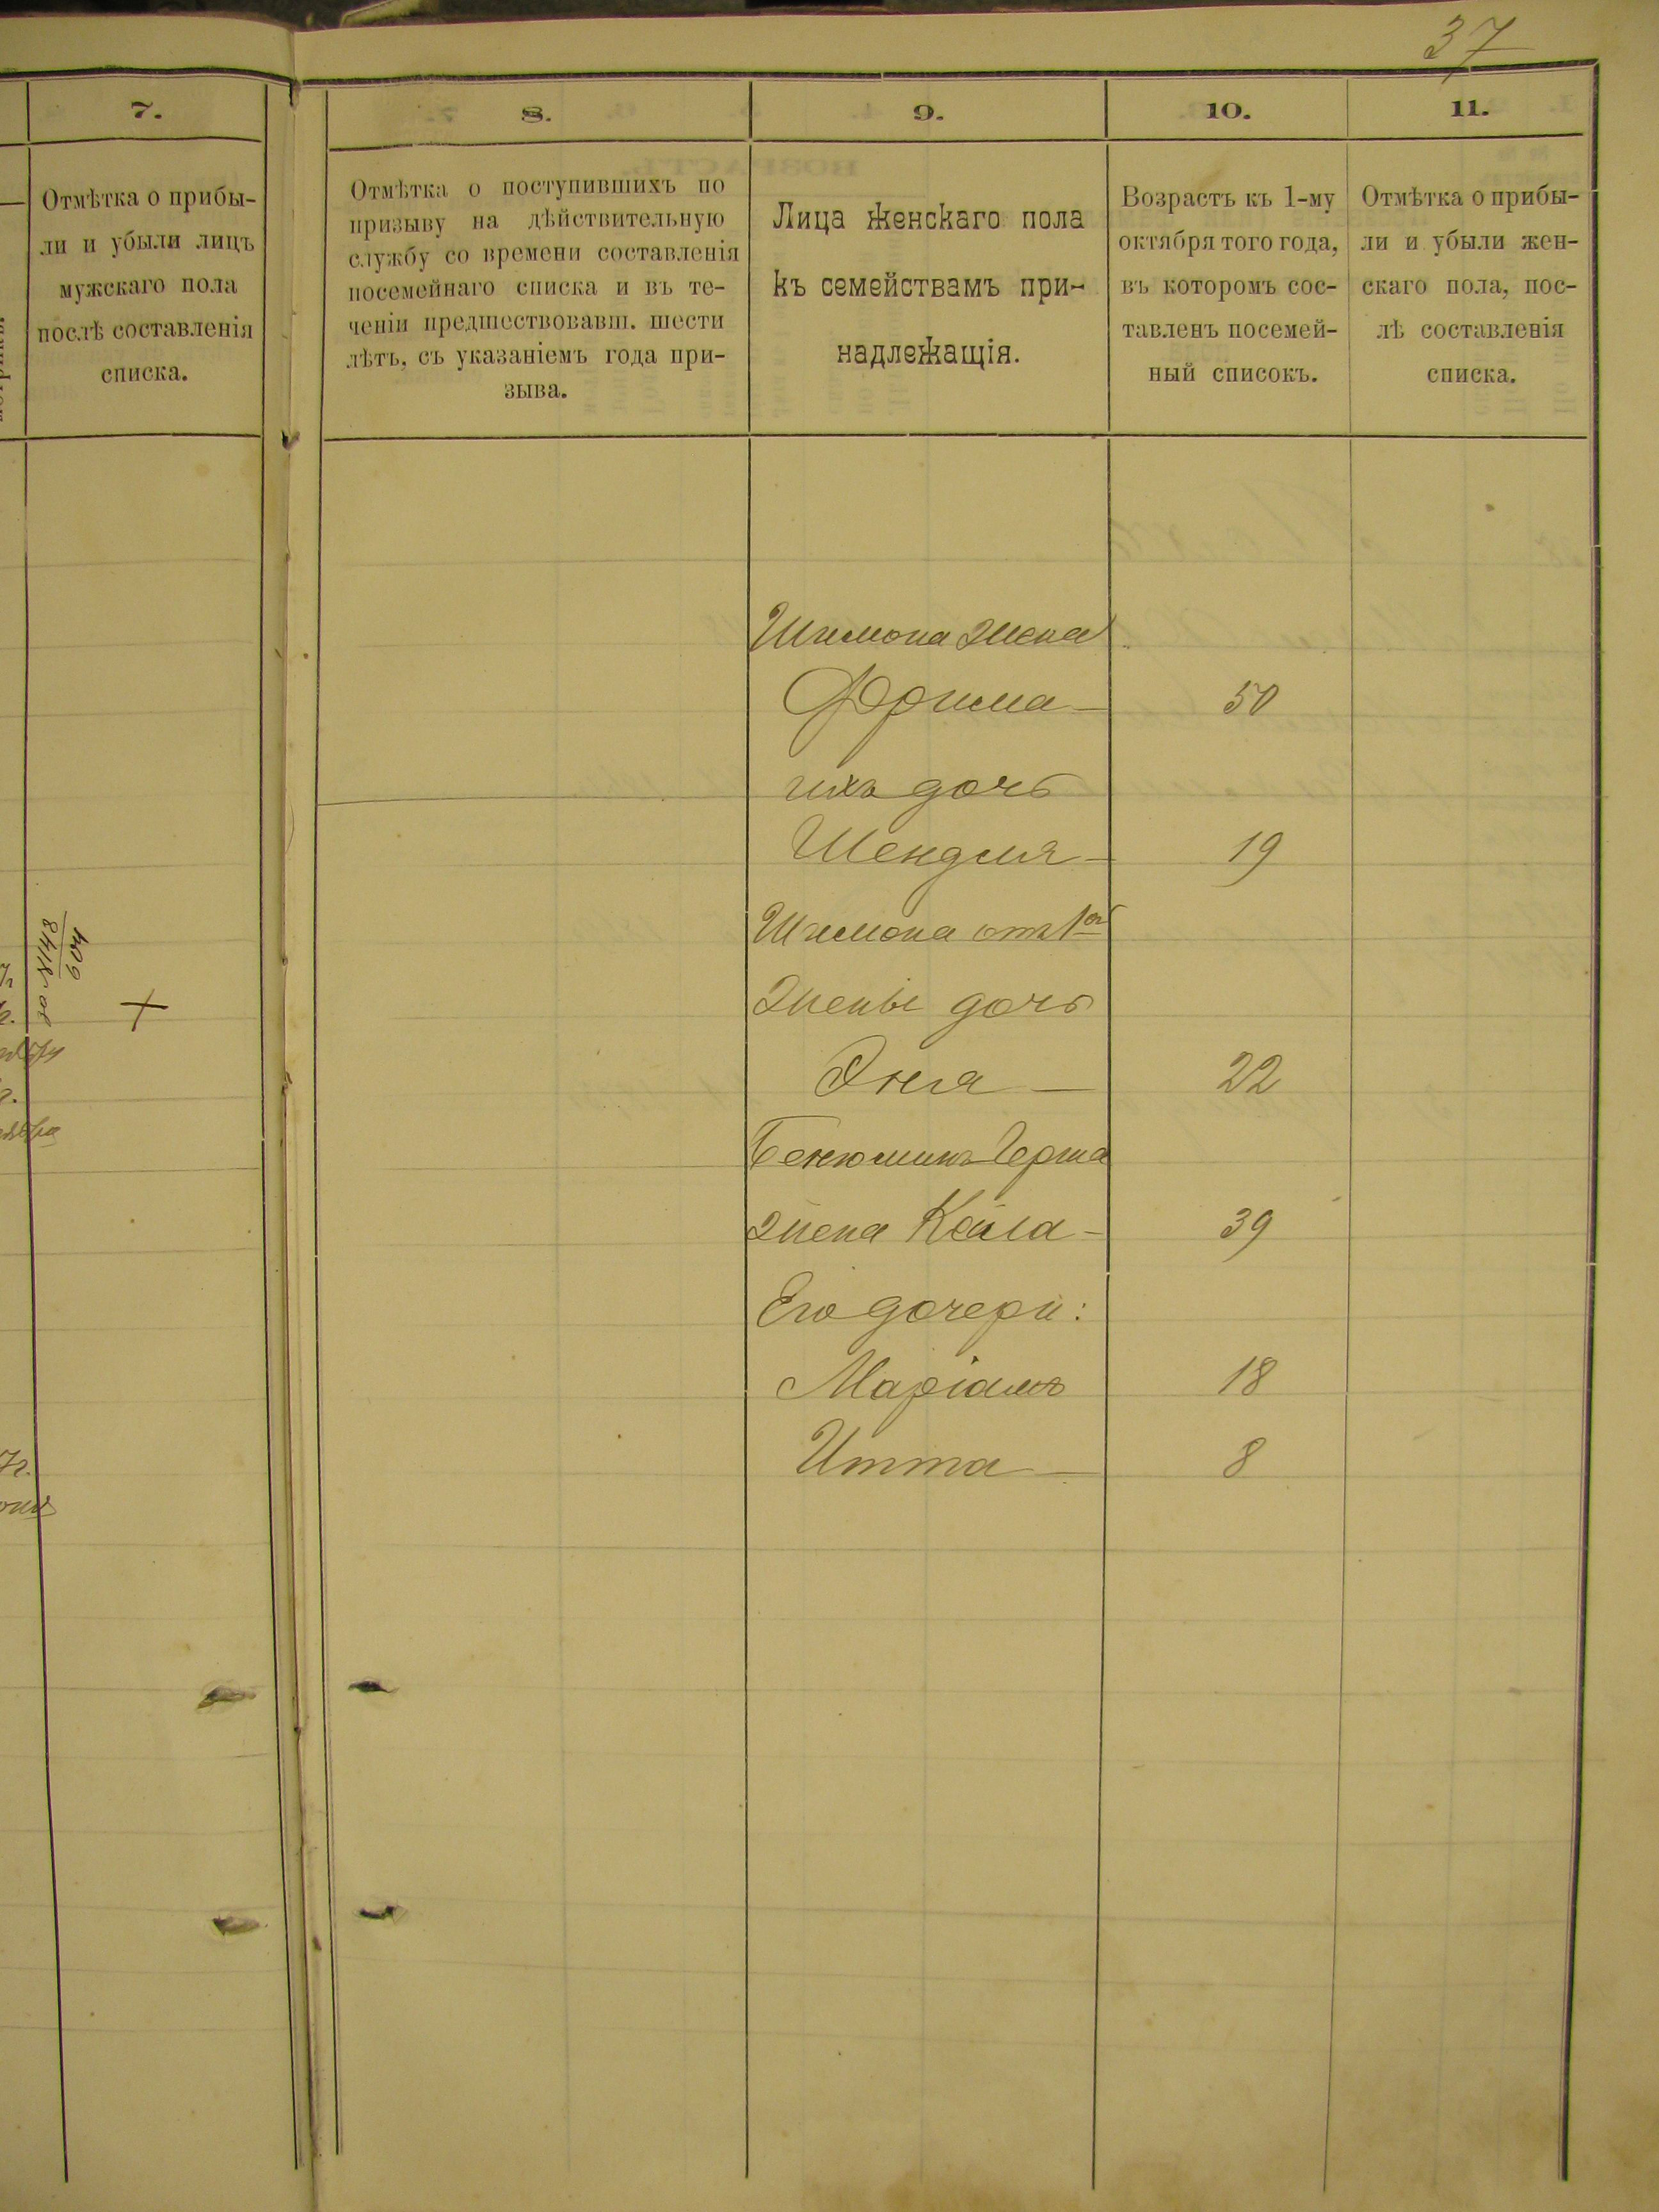 37
7.
8.
9.
10.
11.
Отмѣтка о прибы-
ли и убыли лицъ
мужскаго пола
послѣ составленія
списка.
Отмѣтка о поступившихъ по
призыву на дѣйствительную
службу со времени составленія
посемейнаго списка и въ те-
ченіи предшествовавш. шести
лѣтъ, съ указаніемъ года при-
зыва.
Лица женскаго пола
къ семействамъ при-
надлежащія.
Возрастъ къ 1-му
октября того года,
въ которомъ сос-
тавленъ посемей-
ный списокъ.
Отмѣтка о прибы-
ли и убыли жен-
скаго пола, пос-
лѣ составленія
списка.
Шимона жена
Фрима — 50
ихъ дочь
Шендля — 19
Шимона отъ 1ой
жены дочь
Энія — 22
Бенюминъ Герша
жена Кейла — 39
Его дочери:
Маріамъ 18
Итта — 8